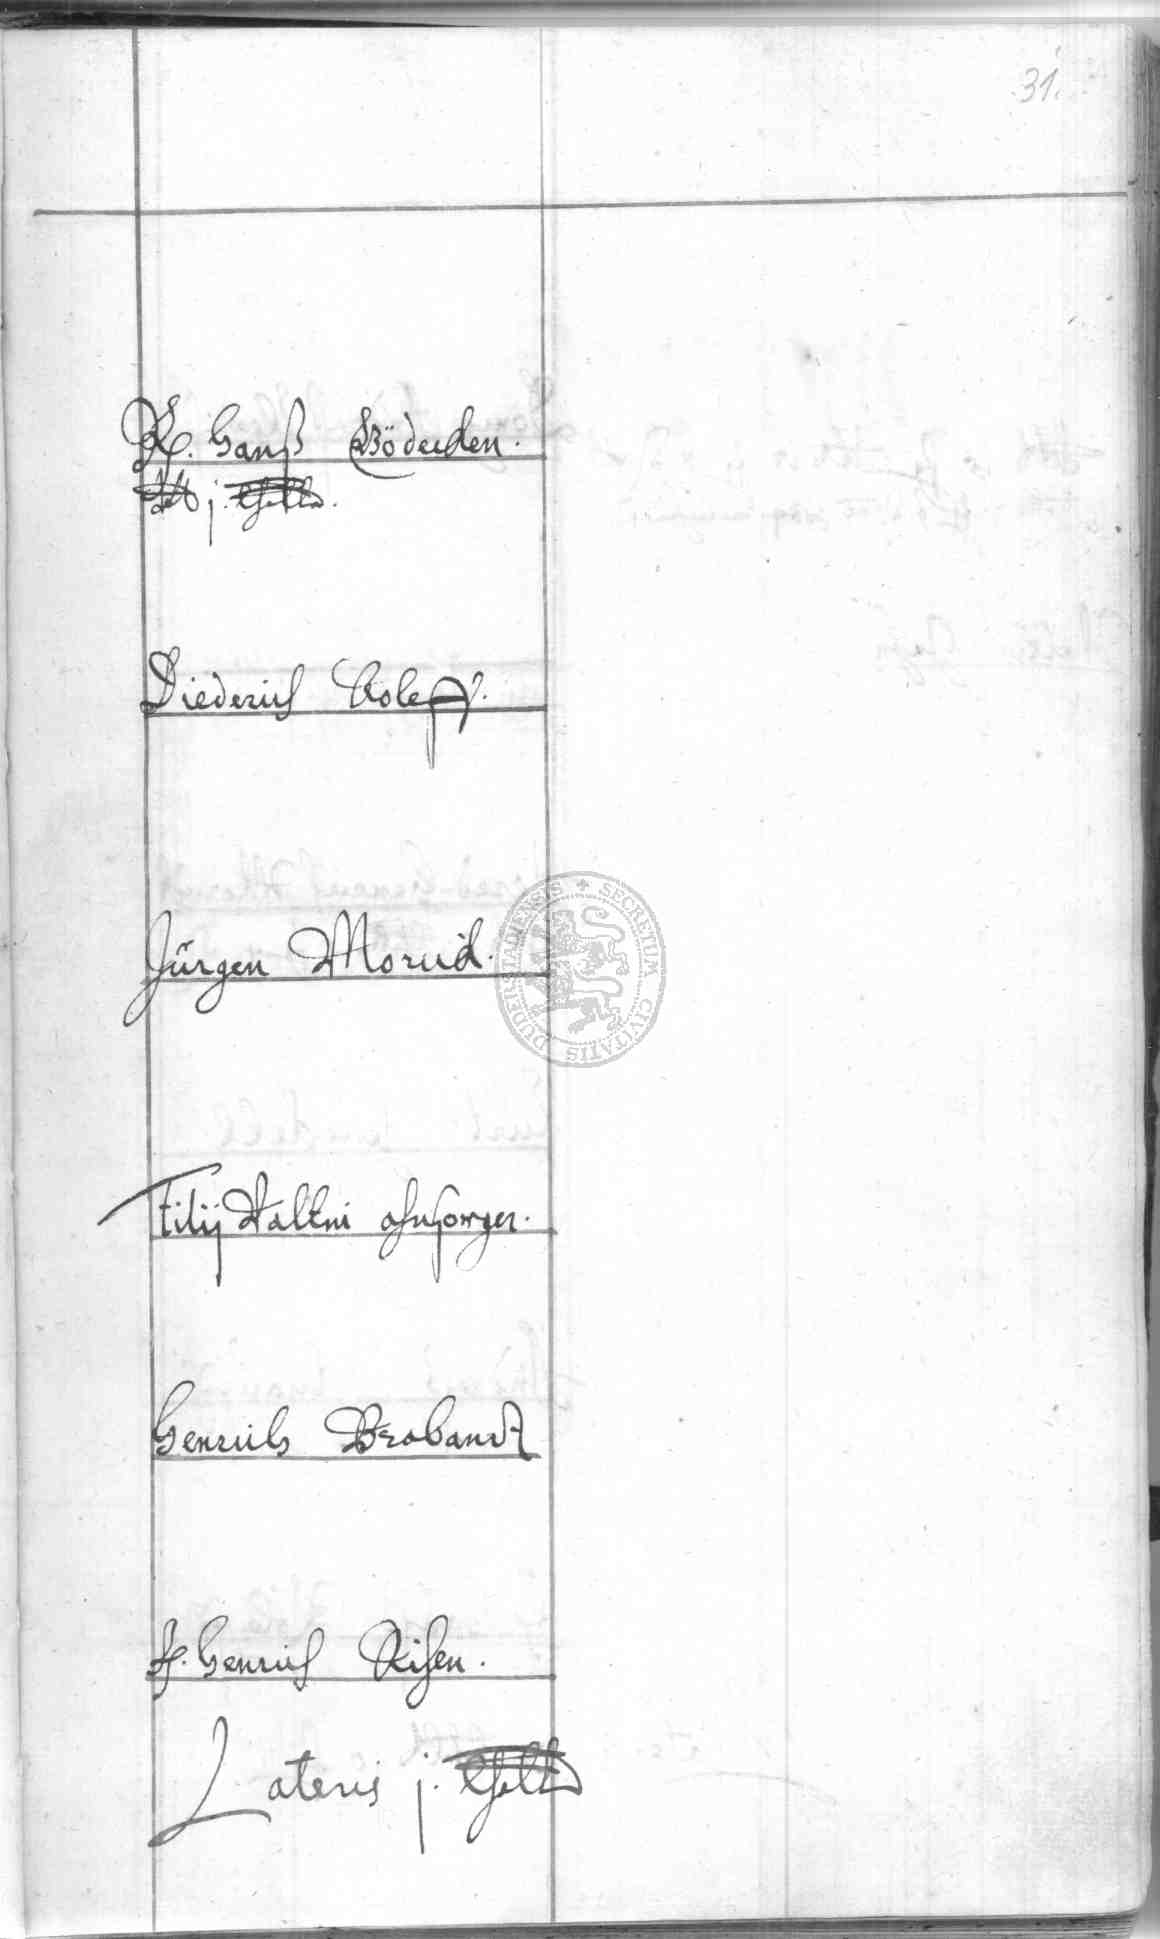 31.
R. Hanß Bödecken.
dt j. thaler.
Diederich
Jürgen Morick.
Filij Valtni ohnsorgen.
Henrich Brobandt
H. Henrich Risen.
Lateris j. thaler
SECRETUM CIVITATIS DUDERSTADIENSIS